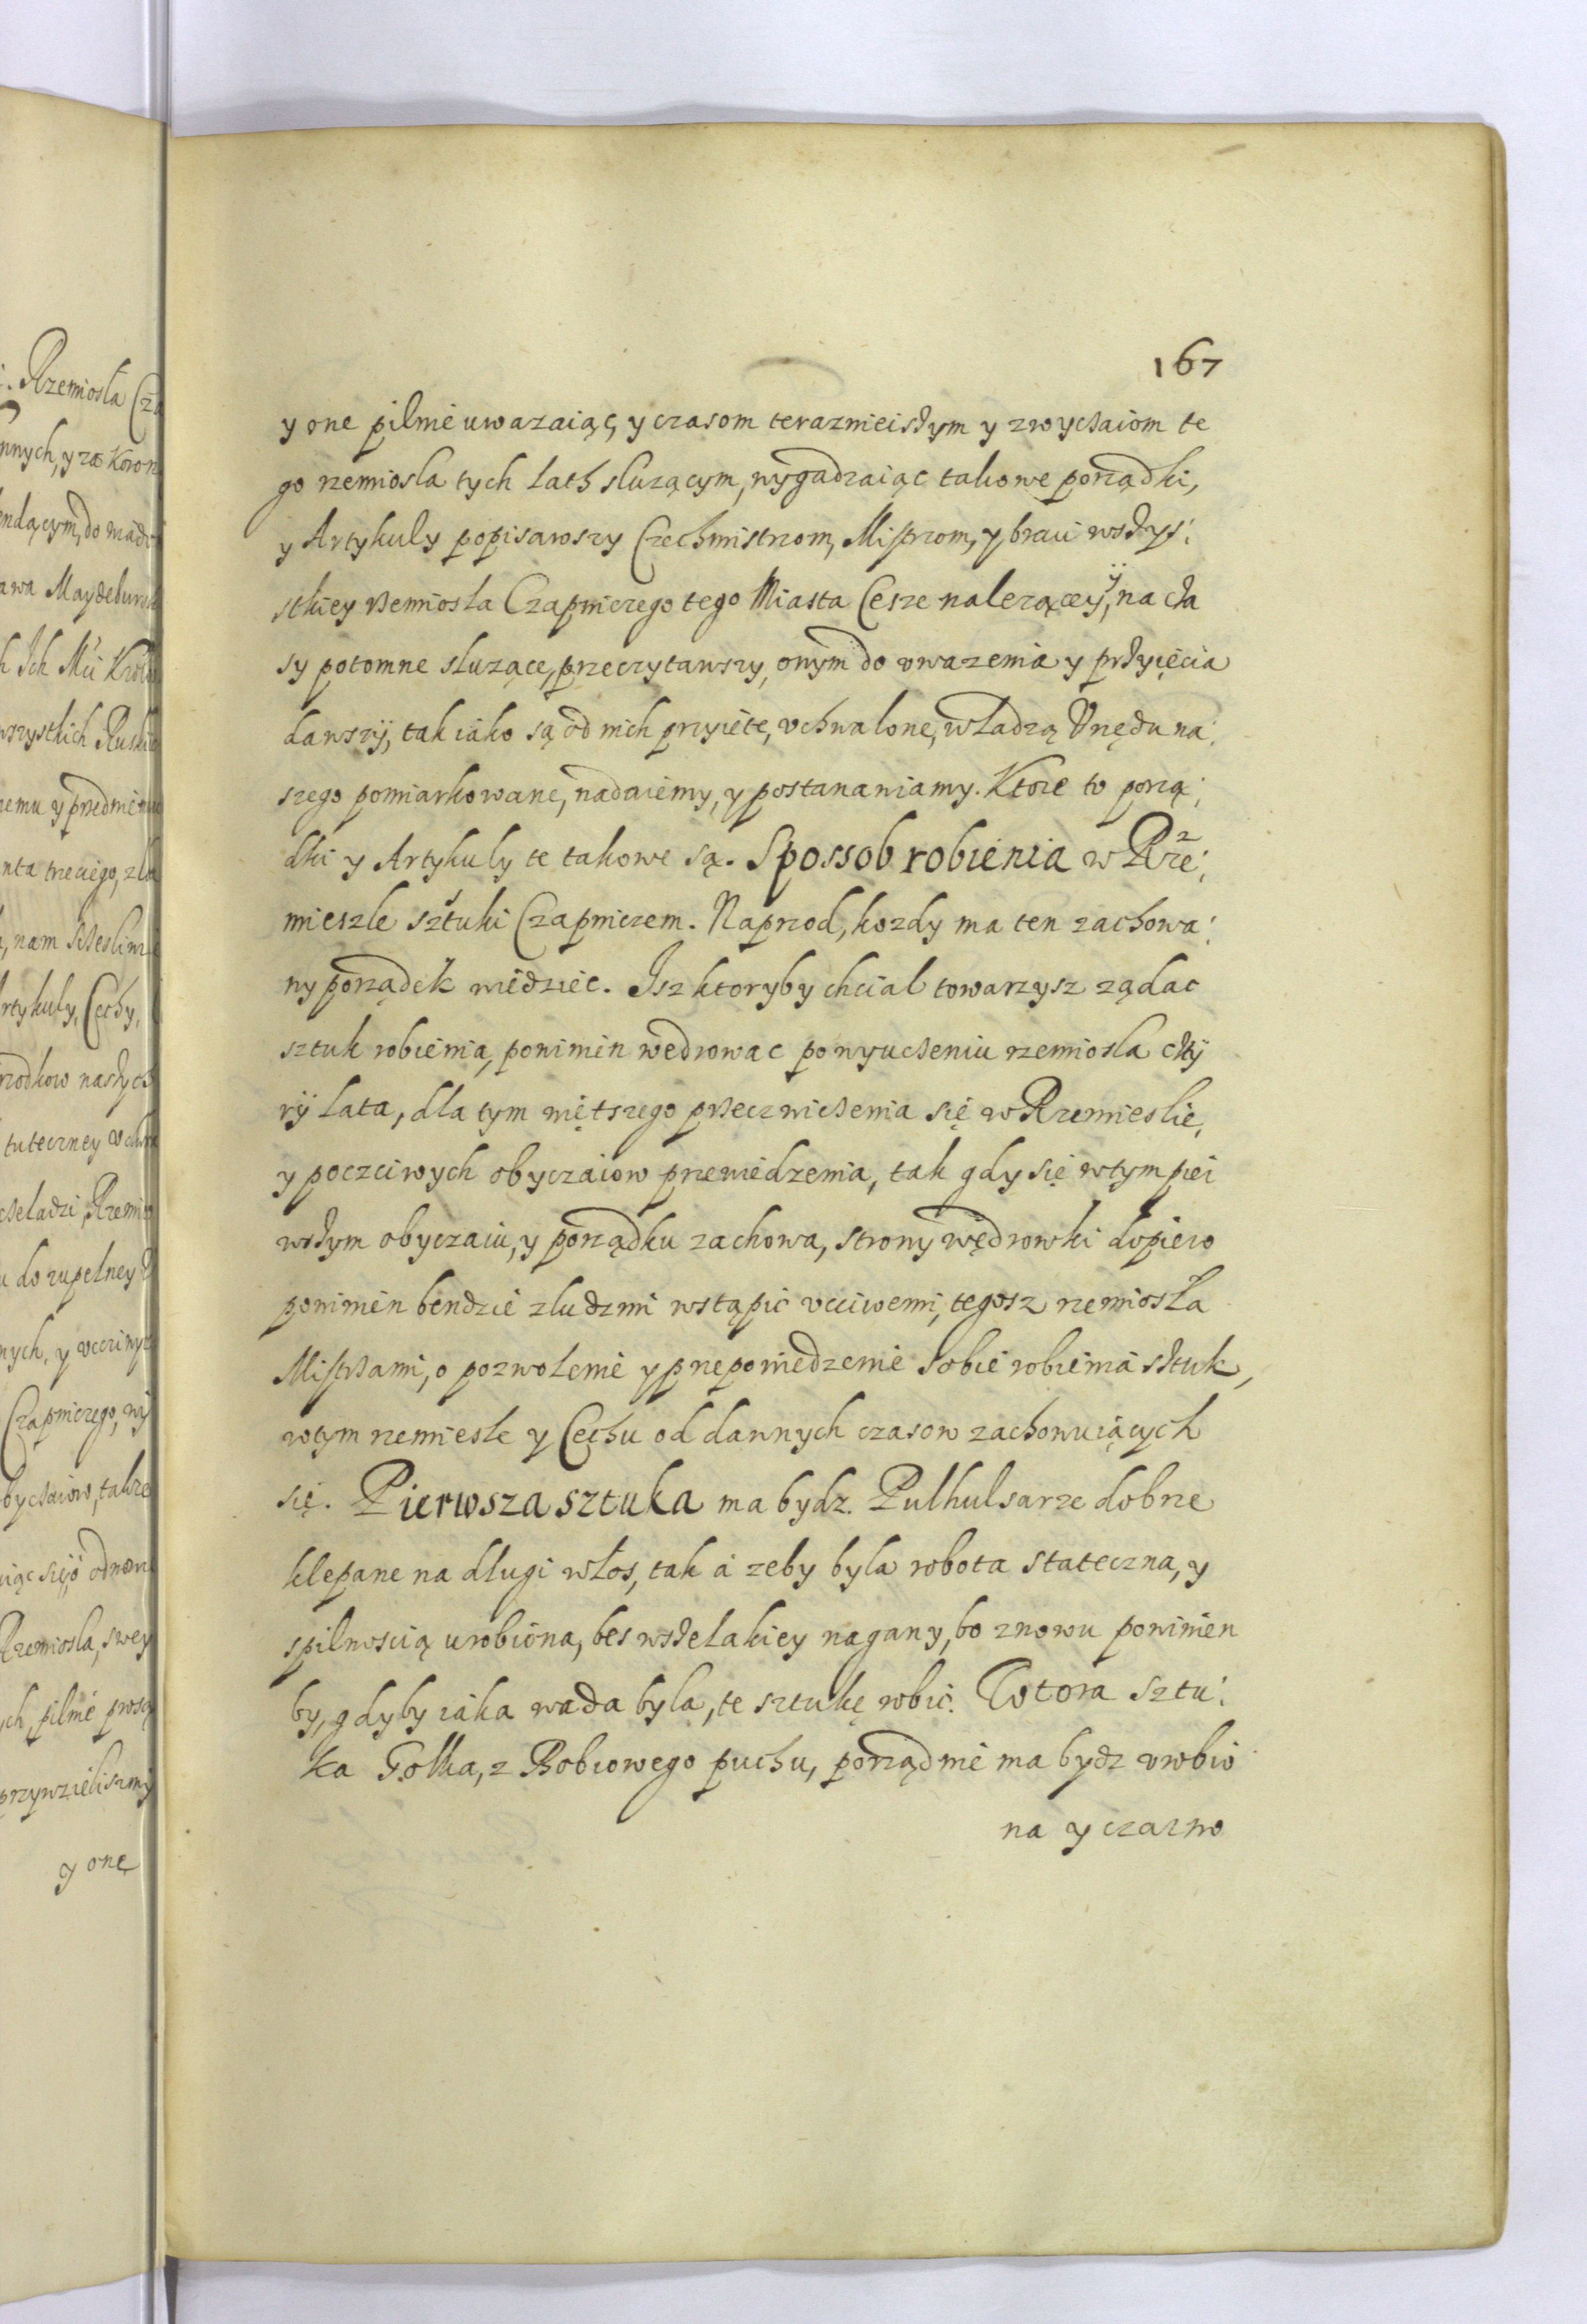 167
y one pilnie uwazaiąc, y czasom teraznieiszym y zwyczaiom te
go rzemiosla tych lath sluzącym, wygadzaiąc takowe porządki,
y Artykuly popisawszy Czechmistrzom, Mistrzom, y braci wszys:
stkiey rzemiosla Czapniczego tego Miasta Cesze nalezącey, na cza
sy potomne sluzące, przeczytawszy, onym do uwazenia y przyięcia
dawszÿ, tak iako są od nich przyiete, uchwalone, władzą Urzędu na:
szego pomiarkowane, nadaiemy, y postanawiamy. Ktore to porzą:
dki y Artykuly te takowe są. Spossob robienia w Rze:
mieszle sztuki Czapniczem. Naprzod, kozdy ma ten zachowa:
ny porządek wiedziec. Isz ktoryby chcial towarzysz ządac
sztuk robienia, powinien wedrowac po wyuczeniu rzemiosla czty
rÿ lata, dla tym więtszego przeczwiczenia się w Rzemieslie,
y poczciwych obyczaiow przewiedzenia, tak gdy się w tym pier
wszym obyczaiu, y porządku zachowa, strony wędrowki dopiero
powinien bendzie z ludzmi wstąpic ucciwemi, tegosz rzemiosła
Mistrzami, o pozwolenie y przepowiedzenie sobie robienia sztuk,
w tym rzemiesle y Cechu od dawnych czasow zachowuiących
się. Pierwsza sztuka ma bydz. Pulhulsarze dobrze
klepane na dlugi włos, tak a zeby byla robota stateczna, y
spilnoscią urobiona, bes wszelakiey nagany, bo znowu powinien
by, gdyby iaka wada byla, te sztukę robic. Wtora sztu:
ka Golka, z Bobrowego puchu, porządnie ma bydz urobio
na y czarno
i. Rzemiosła Cza
nnych, y za Koron
endącym, do
awa Maydebursk
h Ich Mci Krol
wszystkich Ruski
emu y
nta trzeciego, z
, nam
Artykuly, Cechy,
rzodkow naszych
tuteczney
czeladzi, Rzemio
u do zupelney
nych, y uccziwych
Czapniczego, wy
obyczaiow, takze
iąc się o odnow
Rzemiosla, swey
ych, pilnie proszą
przywzielismy
y onę